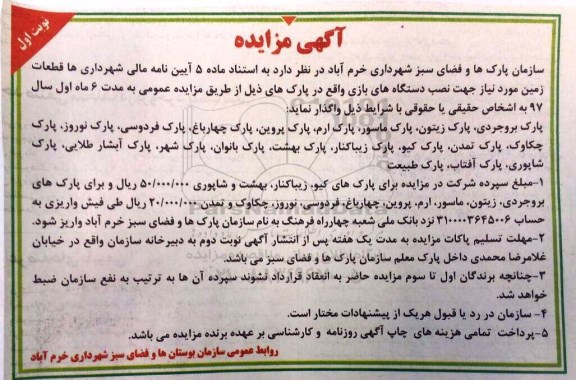 نوبت اول
آگهی مزایده
سازمان پارک ها و فضای سبز شهرداری خرم آباد در نظر دارد به استناد ماده ۵ آیین نامه مالی شهرداری ها قطعات
زمین مورد نیاز جهت نصب دستگاه های بازی واقع در پارک های ذیل از طریق مزایده عمومی به مدت ۶ ماه اول سال
۹۷ به اشخاص حقیقی یا حقوقی با شرایط ذیل واگذار نماید:
پارک بروجردی، پارک زیتون، پارک ماسور، پارک ارم، پارک پروین، پارک چهارباغ، پارک فردوسی، پارک نوروز، پارک
چکاوک، پارک تمدن، پارک کیو، پارک زیباکنار، پارک بهشت، پارک بانوان، پارک شهر، پارک آبشار طلایی، پارک
شاپوری، پارک آفتاب، پارک طبیعت
۱-مبلغ سپرده شرکت در مزایده برای پارک های کیو، زیباکنار، بهشت و شاپوری ۵۰/۰۰۰/۰۰۰ ریال و برای پارک های
بروجردی، زیتون، ماسور، ارم، پروین، چهارباغ، فردوسی، نوروز، چکاوک و تمدن ۲۰/۰۰۰/۰۰۰ ریال طی فیش واریزی به
حساب ۳۱۰۰۰۰۳۶۴۵۰۰۶ نزد بانک ملی شعبه چهارراه فرهنگ به نام سازمان پارک ها و فضای سبز خرم آباد واریز شود.
۲-مهلت تسلیم پاکات مزایده به مدت یک هفته پس از انتشار آگهی نوبت دوم به دبیرخانه سازمان واقع در خیابان
غلامرضا محمدی داخل پارک معلم سازمان پارک ها و فضای سبز می باشد.
۳-چنانچه برندگان اول تا سوم مزایده حاضر به انعقاد قرارداد نشوند سپرده آن ها به ترتیب به نفع سازمان ضبط
خواهد شد.
۴- سازمان در رد یا قبول هریک از پیشنهادات مختار است.
۵-پرداخت تمامی هزینه های چاپ آگهی روزنامه و کارشناسی بر عهده برنده مزایده می باشد.
روابط عمومی سازمان بوستان ها و فضای سبز شهرداری خرم آباد